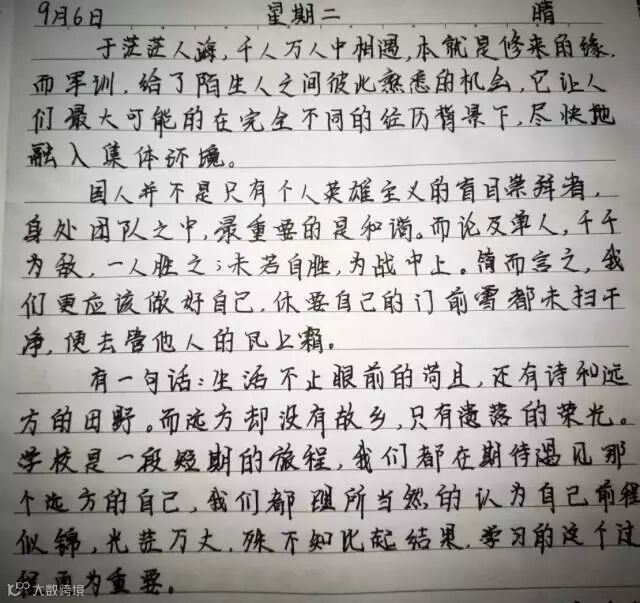 9月6日 星期二 晴
于茫茫人海，千人万人中相遇，本就是修来的缘，
而军训，给了陌生人之间彼此熟悉的机会，它让人
们最大可能的在完全不同的经历背景下，尽快地
融入集体环境。
国人并不是只有个人英雄主义的盲目崇拜者，
身处团队之中，最重要的是和谐。而论及单人，千千
为敌，一人胜之；未若自胜，为战中上。简而言之，我
们更应该做好自己，休要自己的门前雪都未扫干
净，便去管他人的瓦上霜。
有一句话：生活不止眼前的苟且，还有诗和远
方的田野。而远方却没有故乡，只有遗落的荣光。
学校是一段短期的旅程，我们都在期待遇见那
个远方的自己，我们都理所当然的认为自己前程
似锦，光芒万丈，殊不知比起结果，学习的这个过
程更为重要。
大数跨境